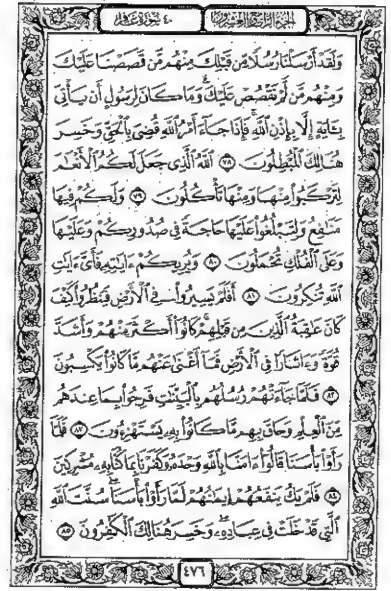 الجزء الرابع والعشرون ٤٠ سورة غافر
وَلَقَدْ أَرْسَلْنَا رُسُلًا مِّن قَبْلِكَ مِنْهُم مَّن قَصَصْنَا عَلَيْكَ
وَمِنْهُم مَّن لَّمْ نَقْصُصْ عَلَيْكَ ۗ وَمَا كَانَ لِرَسُولٍ أَن يَأْتِيَ
بِـَٔايَةٍ إِلَّا بِإِذْنِ ٱللَّهِ ۚ فَإِذَا جَآءَ أَمْرُ ٱللَّهِ قُضِيَ بِٱلْحَقِّ وَخَسِرَ
هُنَالِكَ ٱلْمُبْطِلُونَ ٧٨ ٱللَّهُ ٱلَّذِي جَعَلَ لَكُمُ ٱلْأَنْعَٰمَ
لِتَرْكَبُوا۟ مِنْهَا وَمِنْهَا تَأْكُلُونَ ٧٩ وَلَكُمْ فِيهَا
مَنَٰفِعُ وَلِتَبْلُغُوا۟ عَلَيْهَا حَاجَةً فِي صُدُورِكُمْ وَعَلَيْهَا
وَعَلَى ٱلْفُلْكِ تُحْمَلُونَ ٨٠ وَيُرِيكُمْ ءَايَٰتِهِۦ فَأَيَّ ءَايَٰتِ
ٱللَّهِ تُنكِرُونَ ٨١ أَفَلَمْ يَسِيرُوا۟ فِي ٱلْأَرْضِ فَيَنظُرُوا۟ كَيْفَ
كَانَ عَٰقِبَةُ ٱلَّذِينَ مِن قَبْلِهِمْ ۚ كَانُوٓا۟ أَكْثَرَ مِنْهُمْ وَأَشَدَّ
قُوَّةً وَءَاثَارًا فِي ٱلْأَرْضِ فَمَآ أَغْنَىٰ عَنْهُم مَّا كَانُوا۟ يَكْسِبُونَ
٨٢ فَلَمَّا جَآءَتْهُمْ رُسُلُهُم بِٱلْبَيِّنَٰتِ فَرِحُوا۟ بِمَا عِندَهُم
مِّنَ ٱلْعِلْمِ وَحَاقَ بِهِم مَّا كَانُوا۟ بِهِۦ يَسْتَهْزِءُونَ ٨٣ فَلَمَّا
رَأَوْا۟ بَأْسَنَا قَالُوٓا۟ ءَامَنَّا بِٱللَّهِ وَحْدَهُۥ وَكَفَرْنَا بِمَا كُنَّا بِهِۦ مُشْرِكِينَ
٨٤ فَلَمْ يَكُ يَنفَعُهُمْ إِيمَٰنُهُمْ لَمَّا رَأَوْا۟ بَأْسَنَا ۖ سُنَّتَ ٱللَّهِ
ٱلَّتِي قَدْ خَلَتْ فِي عِبَادِهِۦ ۖ وَخَسِرَ هُنَالِكَ ٱلْكَٰفِرُونَ ٨٥
٤٧٦